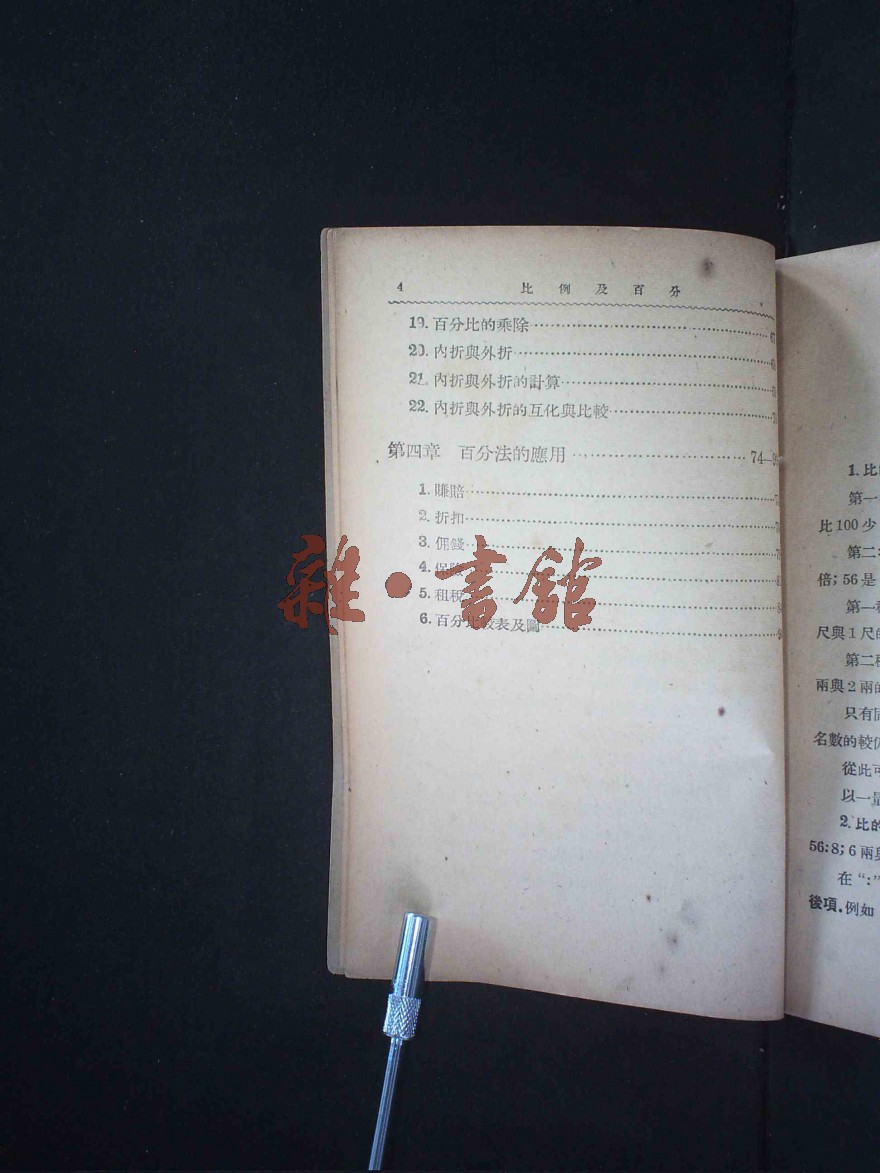 4 比例及百分
19. 百分比的乘除
20. 內折與外折
21. 內折與外折的計算
22. 內折與外折的互化與比較
第四章 百分法的應用 74—
1. 賺賠
2. 折扣
3. 佣錢
4. 保險
5. 租稅
6. 百分比較表及圖
雜·書館
1. 比
第一
比100少
第二
倍; 56是
第一
尺與1尺
第二
兩與2兩
只有
名數的較
從此
以一
2. 比的
56:8; 6兩
在“:”
後項. 例如